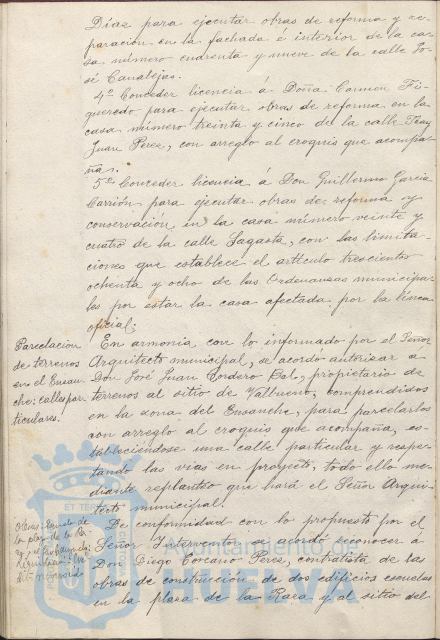 Díaz para ejecutar obras de reforma y re-
paración en la fachada é interior de la ca-
sa número cuarenta y nueve de la calle Jo-
sé Canalejas.
4º Conceder licencia á Doña Carmen Fi-
gueredo para ejecutar obras de reforma en la
casa número treinta y cinco de la calle Fray
Juan Perez, con arreglo al croquis que acompa-
ña.
5º Conceder licencia á Don Guillermo García
Carrión para ejecutar obras de reforma y
conservación en la casa número veinte y
cuatro de la calle Sagasta, con las limita-
ciones que establece el artículo trescientos
ochenta y ocho de las Ordenanzas municipa-
les por estar la casa afectada por la línea
oficial.
Parcelación
de terrenos
en el Ensan-
che: calles par-
ticulares.
En armonía con lo informado por el Señor
Arquitecto municipal, se acordó autorizar a
Don José Juan Cordero Bel, propietario de
terrenos al sitio de Valbueno, comprendidos
en la zona del Ensanche, para parcelarlos
con arreglo al croquis que acompaña, es-
tableciéndose una calle particular y respe-
tando las vías en proyecto, todo ello me-
diante replanteo que hará el Señor Arqui-
tecto municipal.
Obras Escuela de
la plaza de la Ra-
za y
De conformidad con lo propuesto por el
Señor Interventor se acordó reconocer á
Don Diego Toscano Perez, contratista de las
obras de construcción de dos edificios escuelas
en la plaza de la Raza y al sitio del
ET TERRÆ
Ayuntamiento de